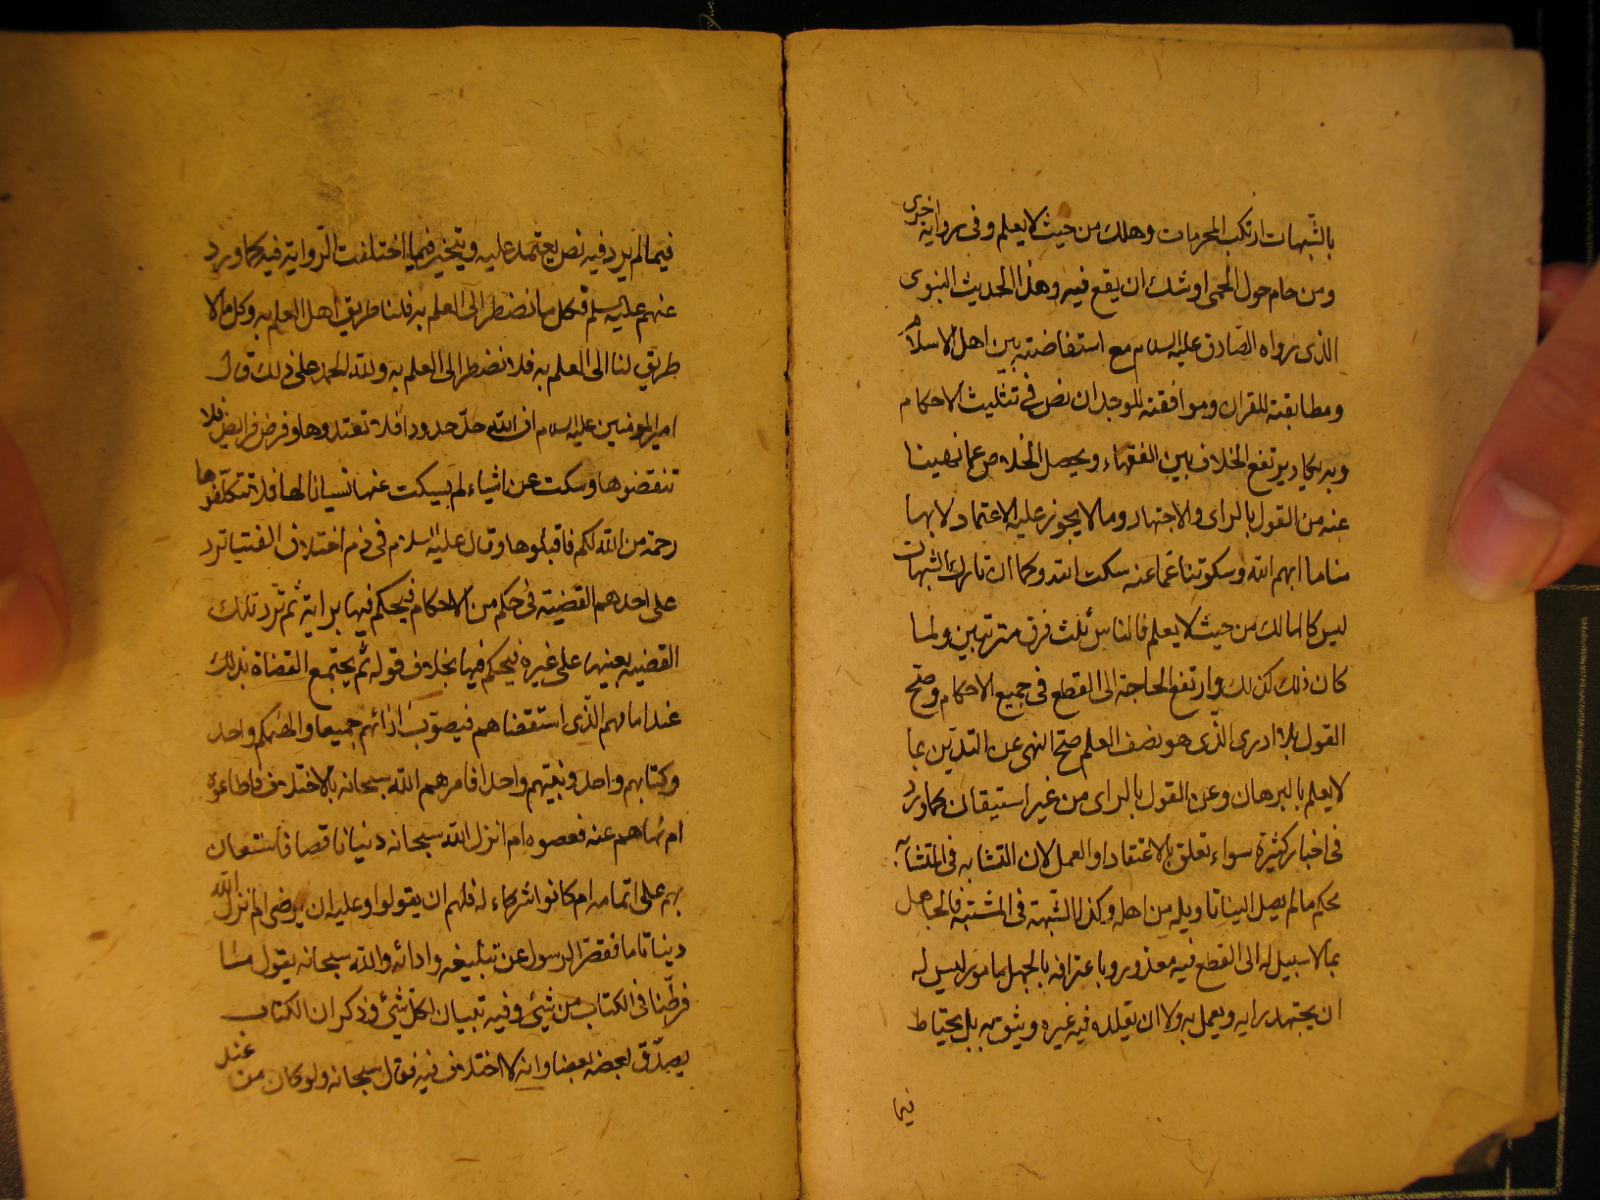 بالشبهات ارتكب المحرمات وهلك من حيث لا يعلم وفى رواية اخرى
ومن حام حول الحمى اوشك ان يقع فيه وهذا الحديث النبوى
الذى رواه الصادق عليه السلام مع استفاضته بين اهل الاسلام
ومطابقته للقران وموافقته للوجدان نص فى تثليث الاحكام
وبه يكاد يرتفع الخلاف بين الفقهاء ويحصل الخلاص عما نهينا
عنه من القول بالراى والاجتهاد وما لا يجوز عليه الاعتماد لابها
منا ما ابهم الله وسكوتنا عما عنه سكت الله وكما ان تارك الشبهات
ليس كالهالك من حيث لا يعلم فالناس ثلث فرق مترتبين ولما
كان ذلك كذلك وارتفع الحاجة الى القطع فى جميع الاحكام وصح
القول بلا ادرى الذى هو نصف العلم صح النهى عن التدين بما
لا يعلم بالبرهان وعن القول بالراى من غير استيقان كما ورد
فى اخبار كثيرة سواء تعلق بالاعتقاد او العمل لان التشابه فى المتشابه
محكم ما لم يصل الينا تاويله من اهله وكذا الشبهة فى المشتبه فالجاهل
بما لا سبيل له الى القطع فيه معذور وباعترافه بالجهل مامور ليس له
ان يجتهد برايه ويعمل به ولا ان يقلد فيه غيره ويثق به بل يحتاط
فيما
فيما لم يرد فيه نص يعتمد عليه ويتخير فيما اختلفت الرواية فيه كما ورد
عنهم عليه السلم فكل ما نضطر الى العلم به فلنا طريق اهل العلم به وكل ما لا
طريق لنا الى العلم به فلا نضطر الى العلم به ولله الحمد على ذلك قال
امير المومنين عليه السلام ان الله حد حدودا فلا تعتدوها وفرض فرايض فلا
تنقضوها وسكت عن اشياء لم يسكت عنها نسيانا لها فلا تتكلفوها
رحمة من الله لكم فاقبلوها وقال عليه السلام فى ذم اختلاف الفتيا ترد
على احدهم القضية فى حكم من الاحكام فيحكم فيها برايه ثم ترد تلك
القضيه بعينها على غيره فيحكم فيها بخلاف قوله ثم يجتمع القضاة بذلك
عند امامهم الذى استقضاهم فيصوب ارائهم جميعا والههم واحد
وكتابهم واحد ونبيهم واحد افامرهم الله سبحانه بالاختلاف فاطاعوه
ام نهاهم عنه فعصوه ام انزل الله سبحانه دينا ناقصا فاستعان
بهم على اتمامه ام كانوا شركاء له فلهم ان يقولوا وعليه ان يرضى ام انزل الله
دينا تاما فقصر الرسول عن تبليغه وادائه والله سبحانه يقول ما
فرطنا فى الكتاب من شئ وفيه تبيان لكل شئ وذكر ان الكتاب
يصدق بعضه بعضا وانه لا اختلاف فيه فقال سبحانه ولو كان من عند